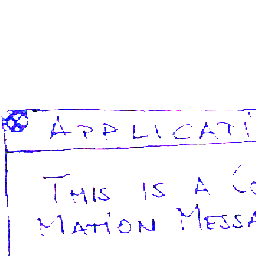 APPLICATI
THIS IS A CO
MATION MESSA